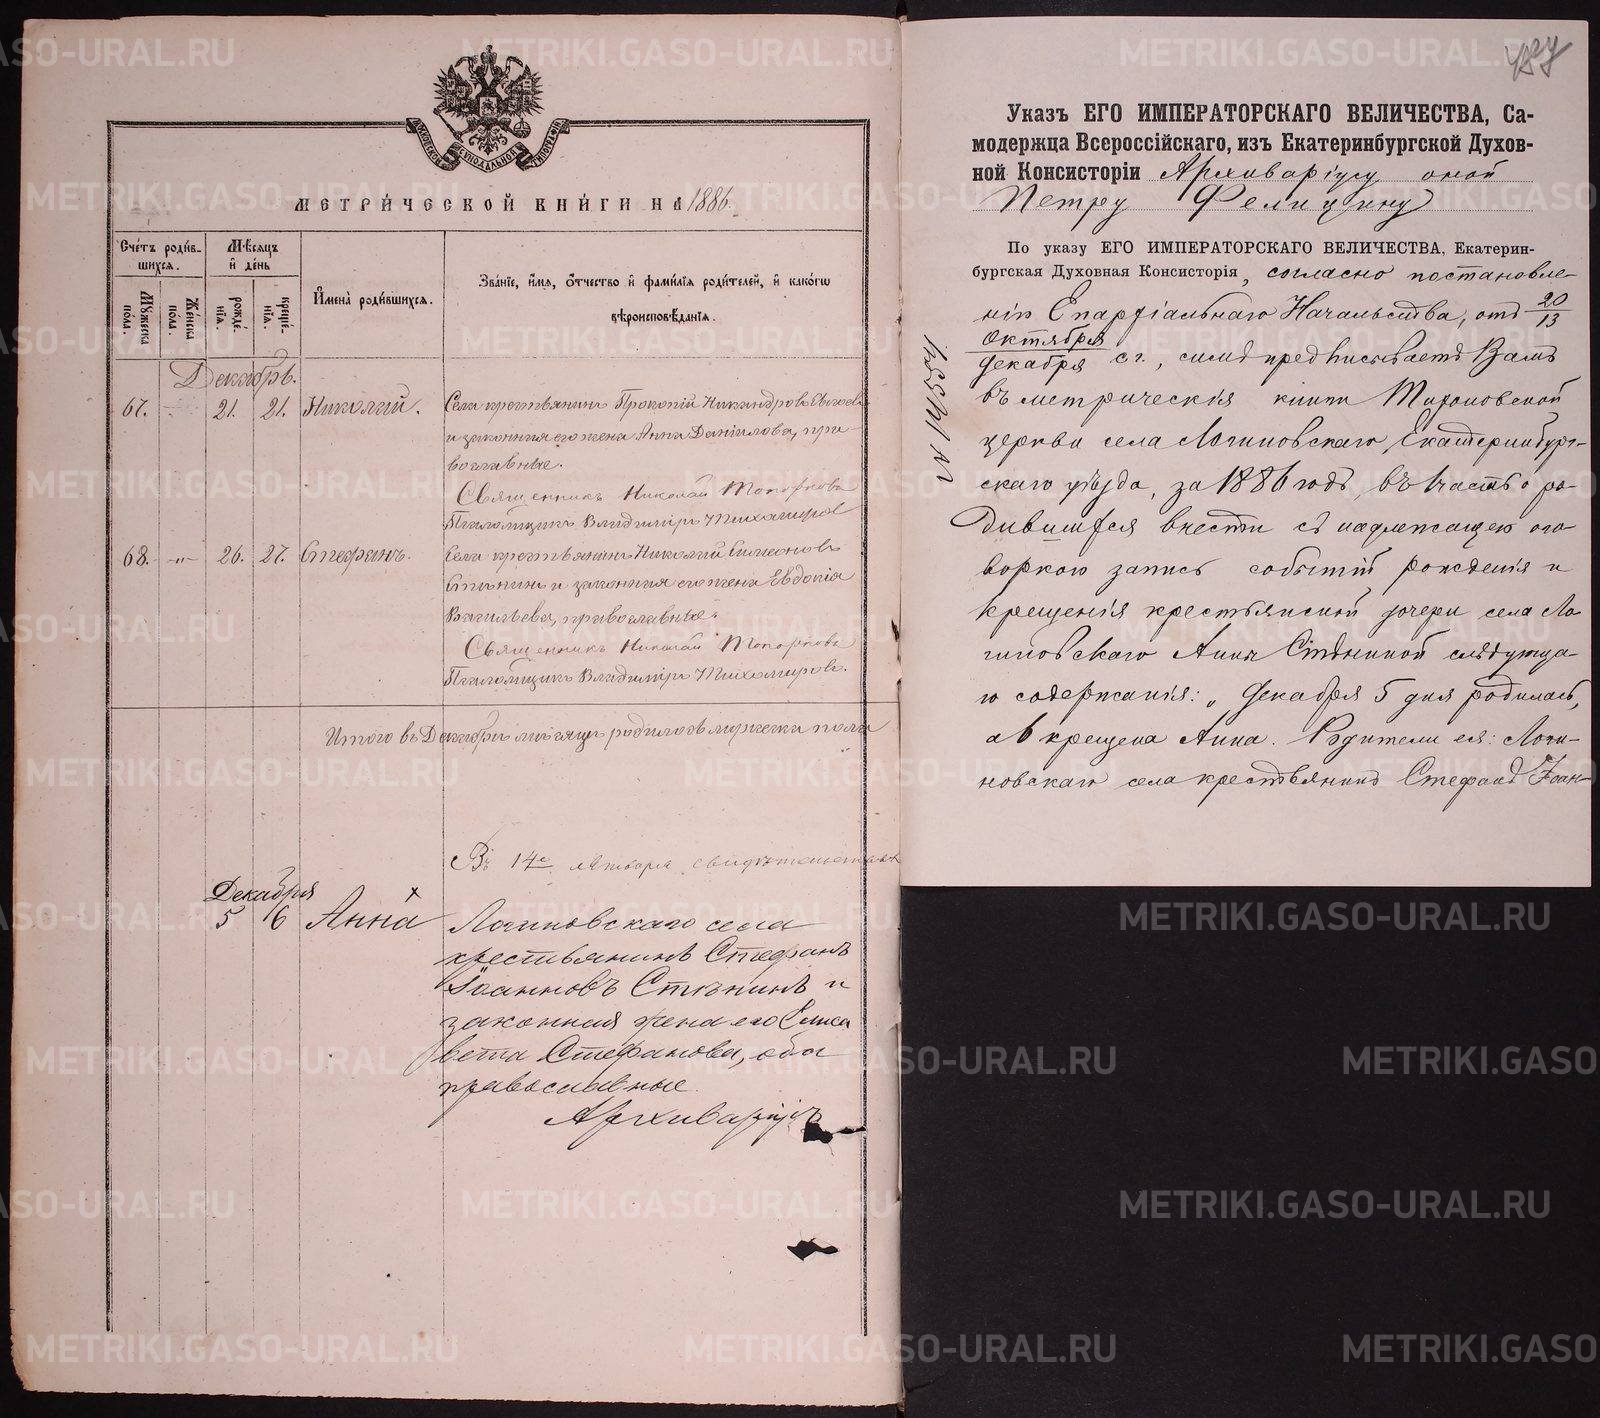 МОСКОВСКОЙ СѴНОДАЛЬНОЙ ТИПОГРАФІИ
МЕТРИ́ЧЕСКОЙ КНИ́ГИ НА 1886.
Сче́тъ роди́в-
шихся.
Мѣсяцъ
и҆ де́нь
Му́жеска
пола.
Же́нска
пола.
рожде́-
нїя.
креще́-
нїя.
И҆мена̀ роди́вшихся.
Зва́нїе, и҆́мя, ѻ҆́тчество и҆ фами́лїя роди́телей, и҆ како́гѡ
вѣроисповѣ́данїя.
Декабрь.
67. 21. 21. Николай. Села крестьянинъ Прокопій Никандровъ
и законная его жена Анна Даніилова, пра-
вославные.
Священникъ Николай Топорковъ
Псаломщикъ Владиміръ Тихомировъ
68. -„- 26. 27. Стефанъ. Села крестьянинъ Николай Симеоновъ
Стѣнинъ и законная его жена Евдокія
Васильева, православные.
Священникъ Николай Топорковъ
Псаломщикъ Владиміръ Тихомировъ.
Итого въ Декабрѣ мѣсяцѣ родилось мужеска пола
Въ 14е января
Декабря
5 6 Анна Логиновскаго села
крестьянинъ Стефанъ
Іоанновъ Стѣнинъ и
законная жена его Елиса
вета Стефанова, оба
православные.
Архиваріусъ
Указъ ЕГО ИМПЕРАТОРСКАГО ВЕЛИЧЕСТВА, Са-
модержца Всероссійскаго, изъ Екатеринбургской Духов-
ной Консисторіи Архиваріусу оной
Петру Фелицину
По указу ЕГО ИМПЕРАТОРСКАГО ВЕЛИЧЕСТВА, Екатерин-
бургская Духовная Консисторія, согласно постановле-
нію Епархіальнаго Начальства, отъ 20/13
Октября
Декабря с.г., симъ предписываетъ Вамъ
въ метрическія книги
церкви села Логиновскаго Екатеринбург-
скаго уѣзда, за 1886 годъ, въ 1 часть о ро-
дившихся внести съ надлежащею ого-
воркою запись событій рожденія и
крещенія крестьянской дочери села Ло-
гиновскаго Анны Стѣниной слѣдующа-
го содержанія: „ Декабря 5 дня родилась,
а 6 крещена Анна. Родители ея: Логи-
новскаго села крестьянинъ Стефанъ Іоан-
METRIKI.GASO-URAL.RU